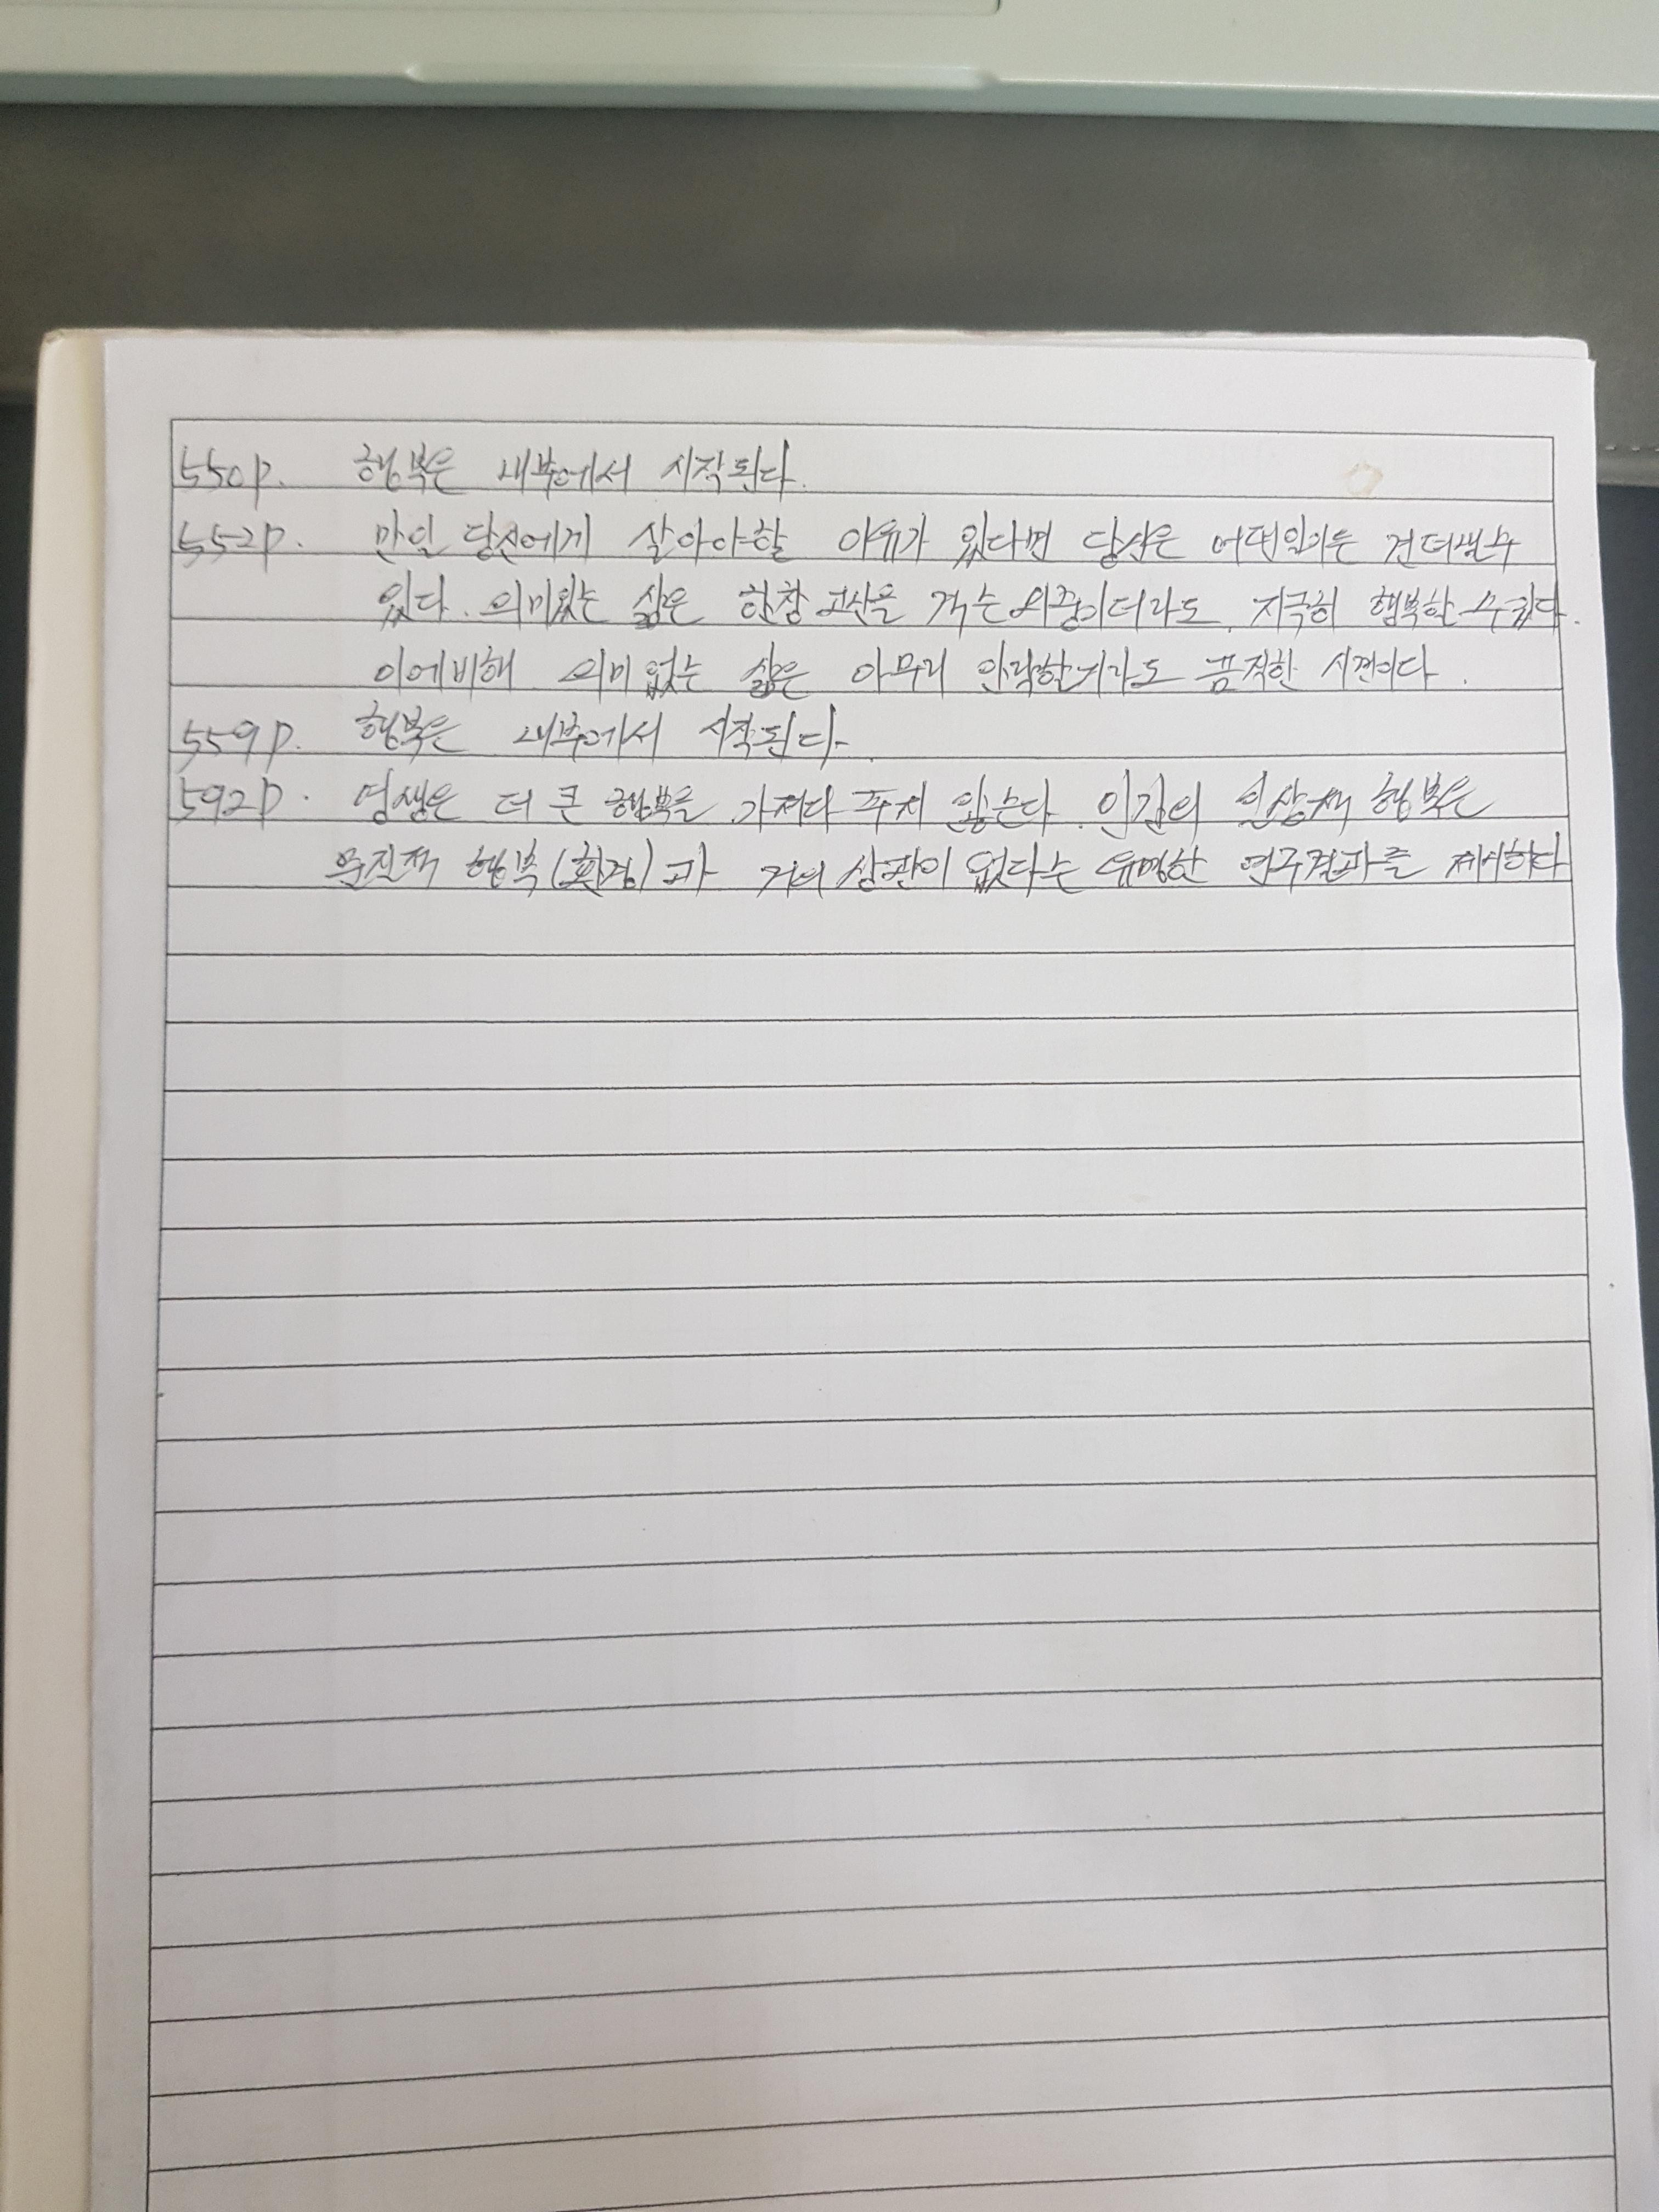 550p. 행복은 내부에서 시작된다.
552p. 만일 당신에게 살아야할 이유가 있다면 당신은 어떤일이든 견뎌낼수
있다. 의미있는 삶은 한창 고난을 겪는 와중이더라도 지극히 행복할 수 있다.
이에비해 의미 없는 삶은 아무리 안락할지라도 끔직한 시련이다.
559p. 행복은 내부에서 시작된다.
592p. 영생은 더 큰 행복을 가져다 주지 않는다. 인간의 일상적 행복은
물질적 행복(환경)과 거의 상관이 없다는 유명한 연구결과를 제시하다